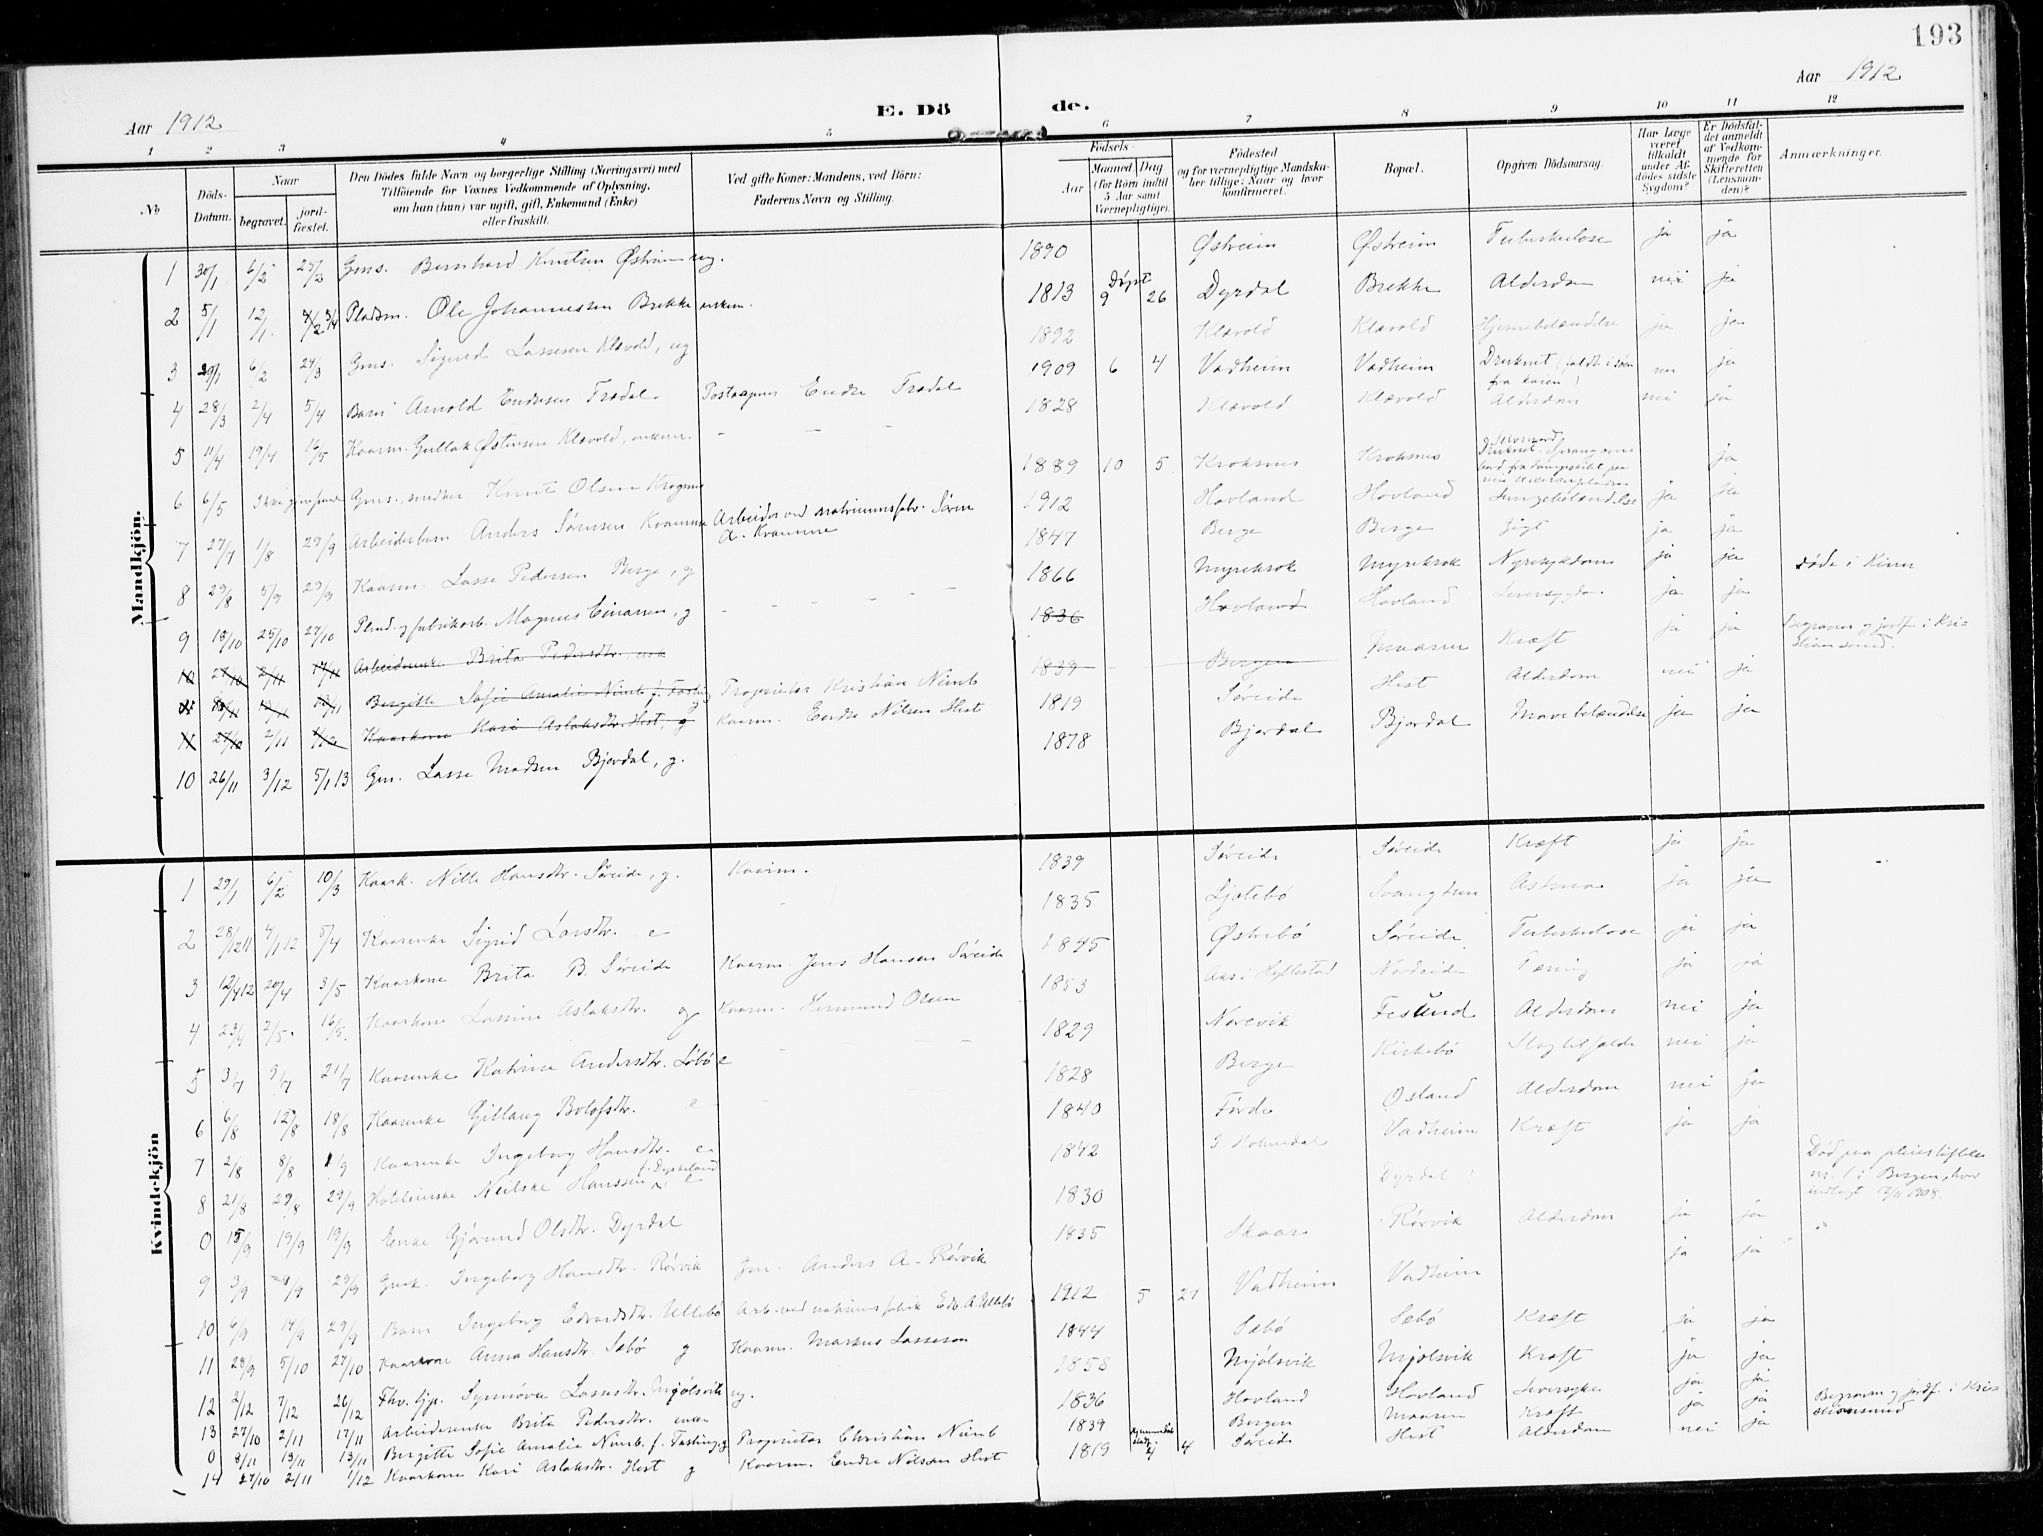 193
Aar 1912
E. Döde.
Aar 1912
1 2 3 4 5 6 7 8 9 10 11 12
No
Döds-Datum.
Naar
begravet.
jord-fæstet.
Den Dödes fulde Navn og borgerlige Stilling (Næringsvei) med
Tilföiende for Voxnes Vedkommende af Oplysning,
om han (hun) var ugift, gift, Enkemand (Enke)
eller fraskilt.
Ved gifte Koner: Mandens, ved Börn:
Faderens Navn og Stilling.
Födsels-
Aar
Maaned Dag
(for Börn indtil
5 Aar samt
Værnepligtige).
Födested
og for værnepligtige Mandska-
ber tillige: Naar og hvor
konfirmeret.
Bopæl.
Opgiven Dödsaarsag.
Har Læge
været
tilkaldt
under Af-
dödes sidste
Sygdom?
Er Dödsfal-
det anmeldt
af Vedkom-
mende for
Skifteretten
(Lensman-
den)?
Anmærkninger.
Mandkjön.
1 30/1 6/2 25/2 Gms. Bernhard Knutsen Østreim ug. 1890 Østreim Østreim Tuberkulose ja ja
2 5/1 12/1 Pladsm. Ole Johannessen Brekke enkem. 1813 Døpt 9 26 Dyrdal Brekke Alderdom nei ja
3 29/1 6/2 24/3 Gms. Sigurd Lassesen Klævold, ug 1892 Klævold Klævold Hjernebetændelse ja ja
4 28/3 2/4 5/4 Barn Arnold Endresen Tredal Postaapner Endre Tredal 1909 6 4 Vadheim Vadheim Druknet (faldt i sjøen fra kaien) ja
5 11/4 19/4 16/5 Kaarm. Gullak Østensen Klævold, enkem. 1828 Klævold Klævold Alderdom nei ja
6 6/5 Gms., snedker Knut Olsen Krogsnes 1889 10 5 Kroksnes Kroksnes Selvmord Druknet. ja
7 27/7 1/8 29/9 Arbeiderbarn Anders Sørensen Kvamme Arbeider ved natriumsfabr. Søren A. Kvamme 1912 Hovland Hovland Lungebetændelse ja ja
8 29/8 5/9 29/9 Kaarm. Lasse Pedersen Berge, g 1847 Berge Berge Gigt ja ja
9 18/10 25/10 27/10 Magnus Einarsen, g 1866 Myrekrok Myrekrok Nyresykdom ja ja døde i Kinn
10 27/10 2/11 17/11 Arbeiderenke Brita Pedersdtr. enke 1836 Hovland Hovland Leversygdom ja ja
Birgitte Sofie Amalie Nimb f. Fasting g Proprietær Kristian Nimb 1839 Bergen Maaren Kræft ja ja Begraven og jordf. i Kristiansund.
11 27/10 2/11 1/12 Kaarkone Kari Aslaksdtr. Hest, g Kaarm. Endre Nilsen Hest 1819 Søreide Hest Alderdom nei ja
10 26/11 3/12 5/1 13 Gm. Lasse Madsen Bjordal, g. 1878 Bjordal Bjordal Mavebetændelse ja ja
Kvindekjön
1 29/1 6/2 10/3 Kaark. Nille Hansdtr. Søreide, g. Kaarm. 1839 Søreide Søreide Kræft ja ja
2 28/12 11 4/1 12 5/4 Kaarenke Sigrid Larsdtr. e 1835 Ljotebø Svangtun Astma ja ja
3 12/4 12 20/4 3/5 Kaarkone Brita B. Søreide Kaarm. Jens Hansen Søreide 1845 Østrebø Søreide Tuberkulose ja ja
4 23/4 2/5 16/5 Kaarkone Lassine Aslaksdtr. g Kaarm. Hermund Olsen 1853 Aas i Hyllestad Nordeide Tæring ja ja
5 3/7 9/7 21/7 Kaarenke Katrine Andersdtr. Løbø e 1829 Norevik Alderdom nei ja
6 6/8 12/8 18/8 Kaarenke Gillaug Bolofsdtr. e 1828 Berge Kirkebø Slagtilfælde nei ja
7 2/8 8/8 1/9 Kaarenke Ingeborg Hansdtr. e 1840 Førde Osland Alderdom nei ja
8 21/8 29/8 29/9 Hotelenke Neilske Hanssen e 1842 I Holmedal Vadheim Kræft ja ja
0 15/9 19/9 19/9 Enke Gjørund Olsdtr. Dyrdal 1830 Dyrdal Død paa pleiestiftelse nr. 1 i Bergen, hvor indlagt 12/11 1908.
9 3/9 9/9 29/9 Gmk. Ingeborg Hansdtr. Rørvik Gm. Anders A. Rørvik 1835 Skaar Rørvik Alderdom ja ja
10 6/9 14/9 29/9 Barn Ingeborg Edvardsdtr. Ullebø Arb. ved natriumsfabrik Edv. A. Ullebø 1912 5 27 Vadheim Vadheim ja ja
11 28/9 5/10 27/10 Kaarkone Anna Hansdtr. Sæbø g Kaarm. Markus Lassesen 1844 Sæbø Sæbø Kræft ja ja
12 2/12 7/12 26/12 Fhv. tjp. Synnøva Lassesdtr. Mjølsvik ug. Mjølsvik Mjølsvik Kræft ja ja
13 27/10 2/11 17/11 Arbeiderenke Brita Pedersdtr. enke 1836 Hovland Hovland Leversyke ja ja
0 8/11 13/11 13/11 Birgitte Sofie Amalie Nimb f. Fasting g Proprietær Christian Nimb 1839 Bergen Maaren Kræft ja ja Begraven og jordf. i Kristiansund
14 27/10 2/11 1/12 Kaarkone Kari Aslaksdtr. Hest g Kaarm. Endre Nilsen Hest 1819 4 Søreide Hest Alderdom nei ja